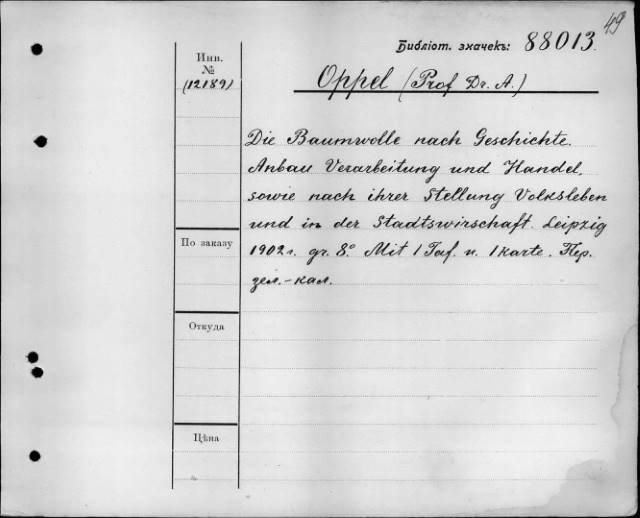 49
Библіот. значекъ: 88013.
Инв.
№
(12189)
Oppel (Prof Dr. A.)
Die Baumwolle nach Geschichte.
Anbau Verarbeitung und Handel,
sowie nach ihrer Stellung Volksleben
und in der Stadtswirschaft. Leipzig
По заказу
1902 г. gr. 8° Mit 1 Taf. u. 1 karte. Пер.
зел.-кал.
Откуда
Цѣна